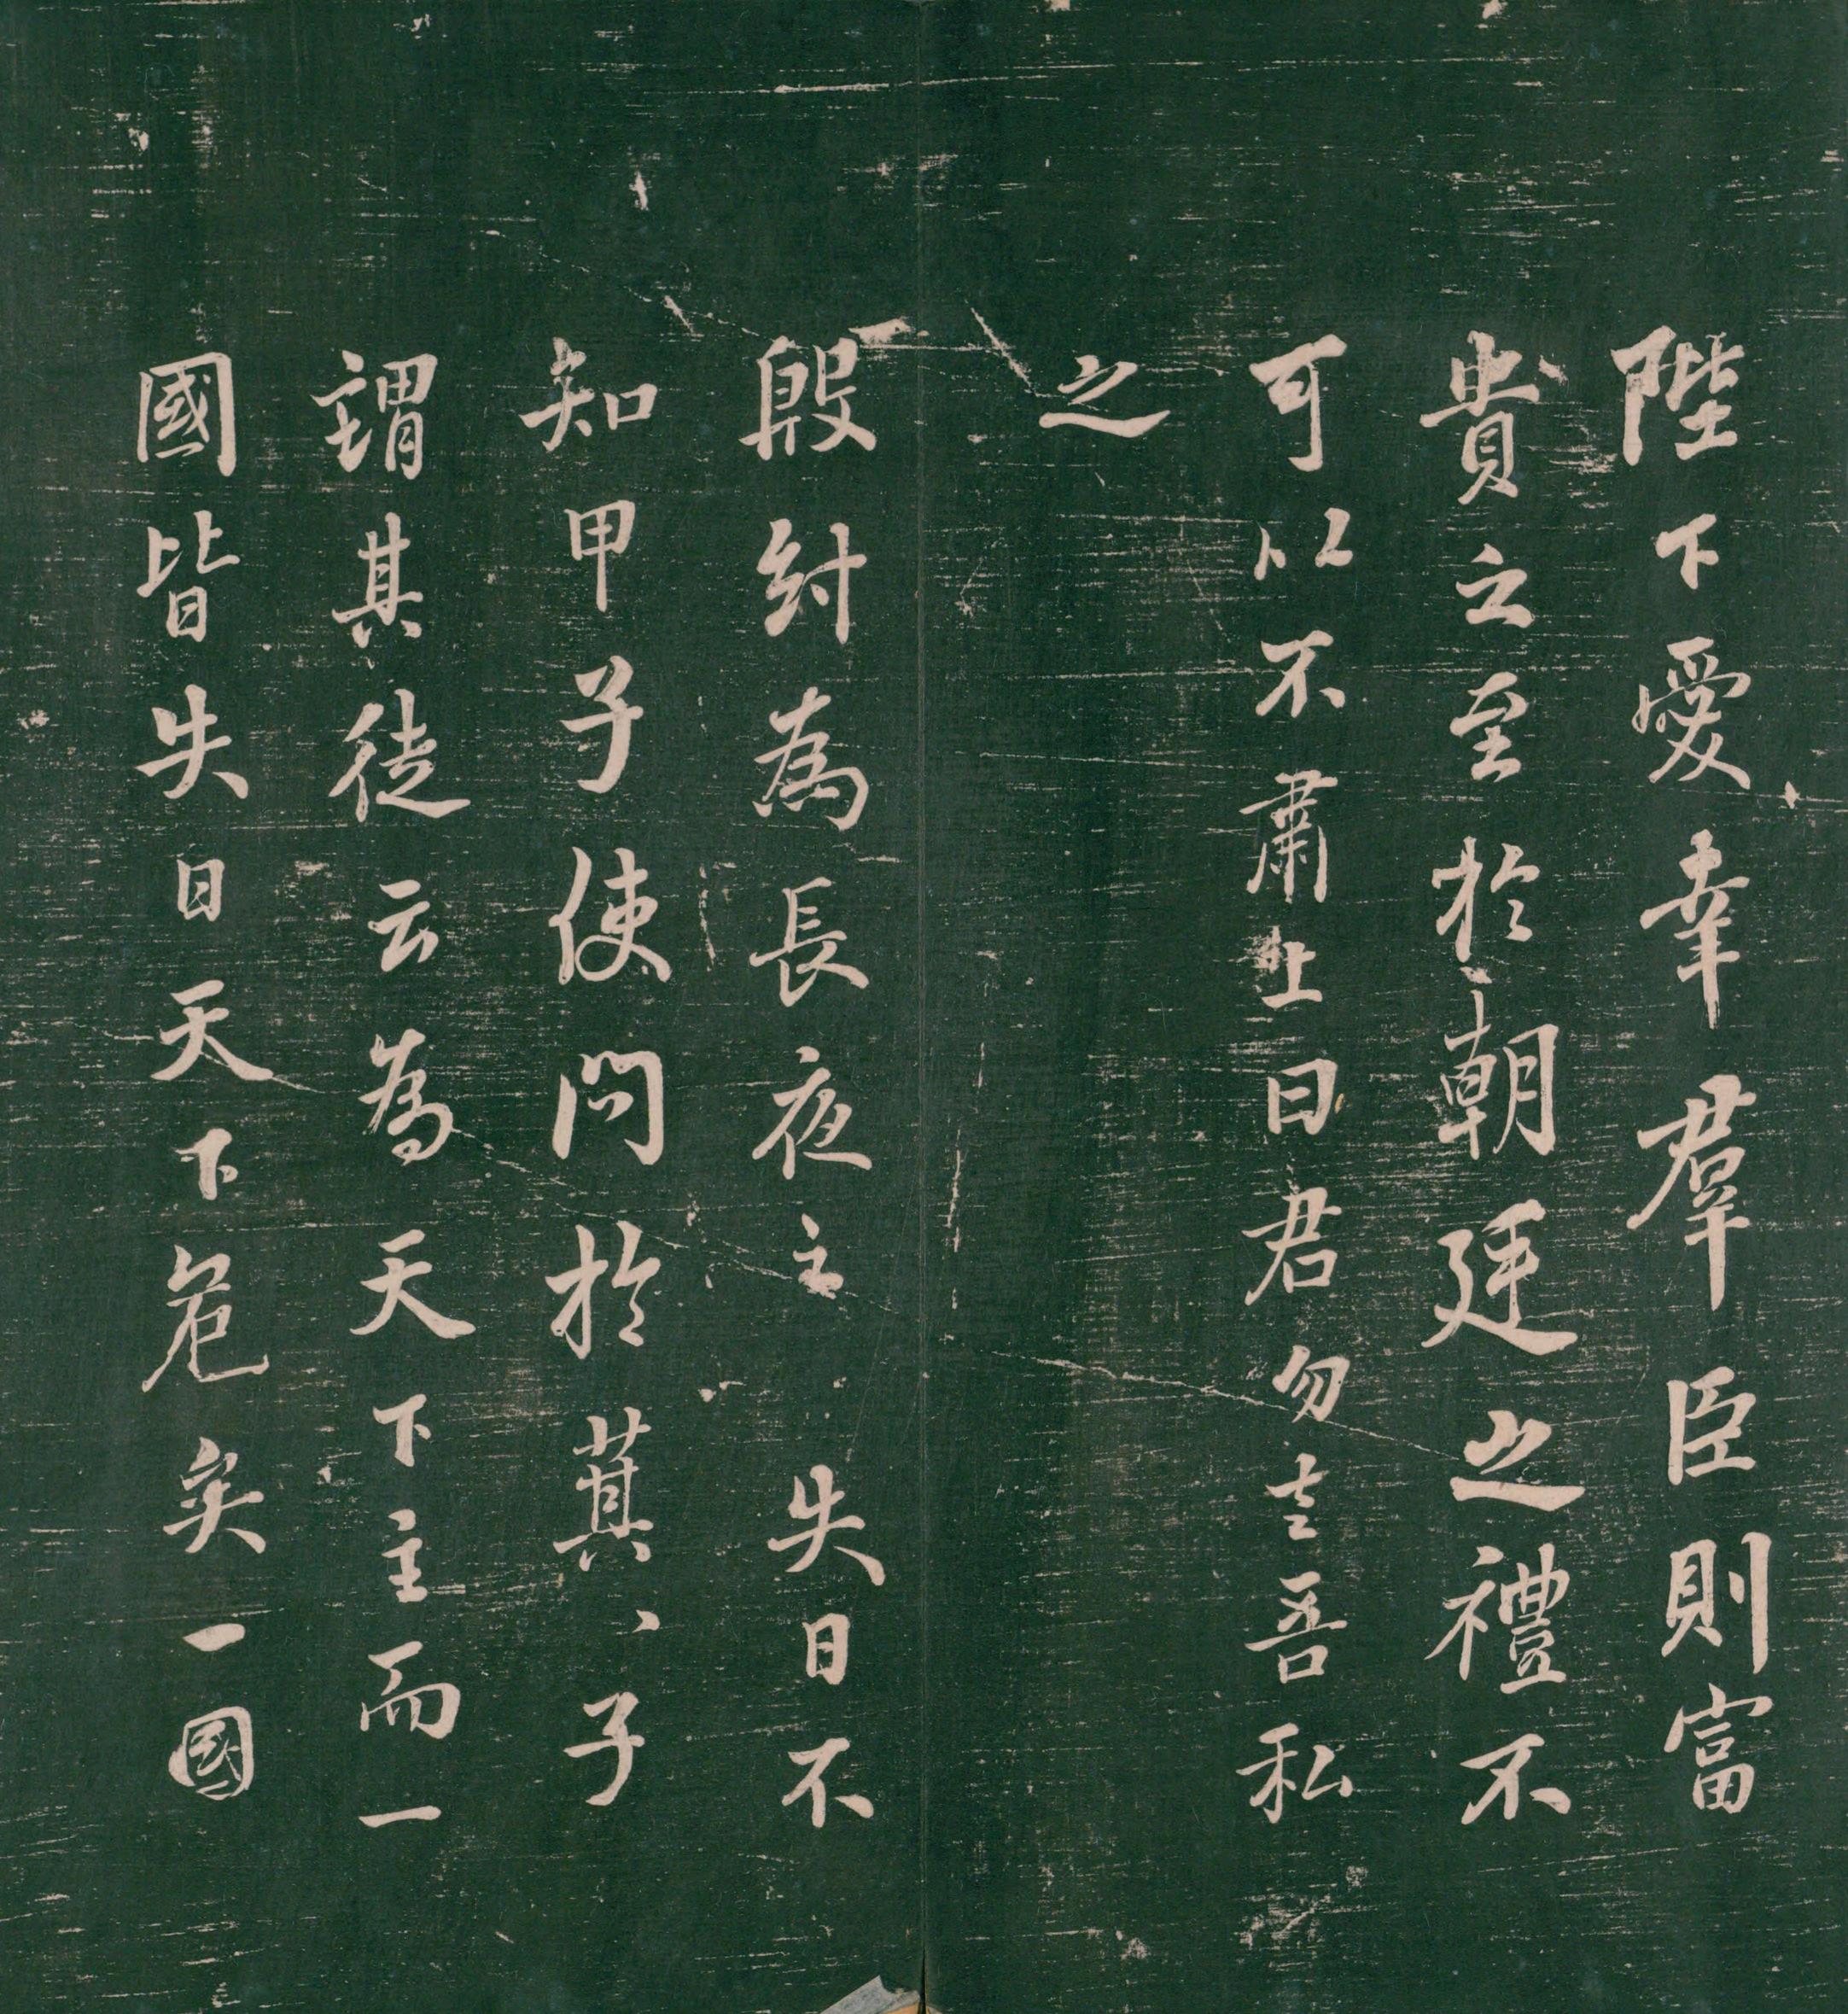 陛下愛幸羣臣則富
貴之至於朝廷之禮不
可以不肅上曰君勿言吾私
之
殷紂為長夜之失日不
知甲子使問於萁、子
謂其徒云為天下主而一
國皆失日天下危矣一國